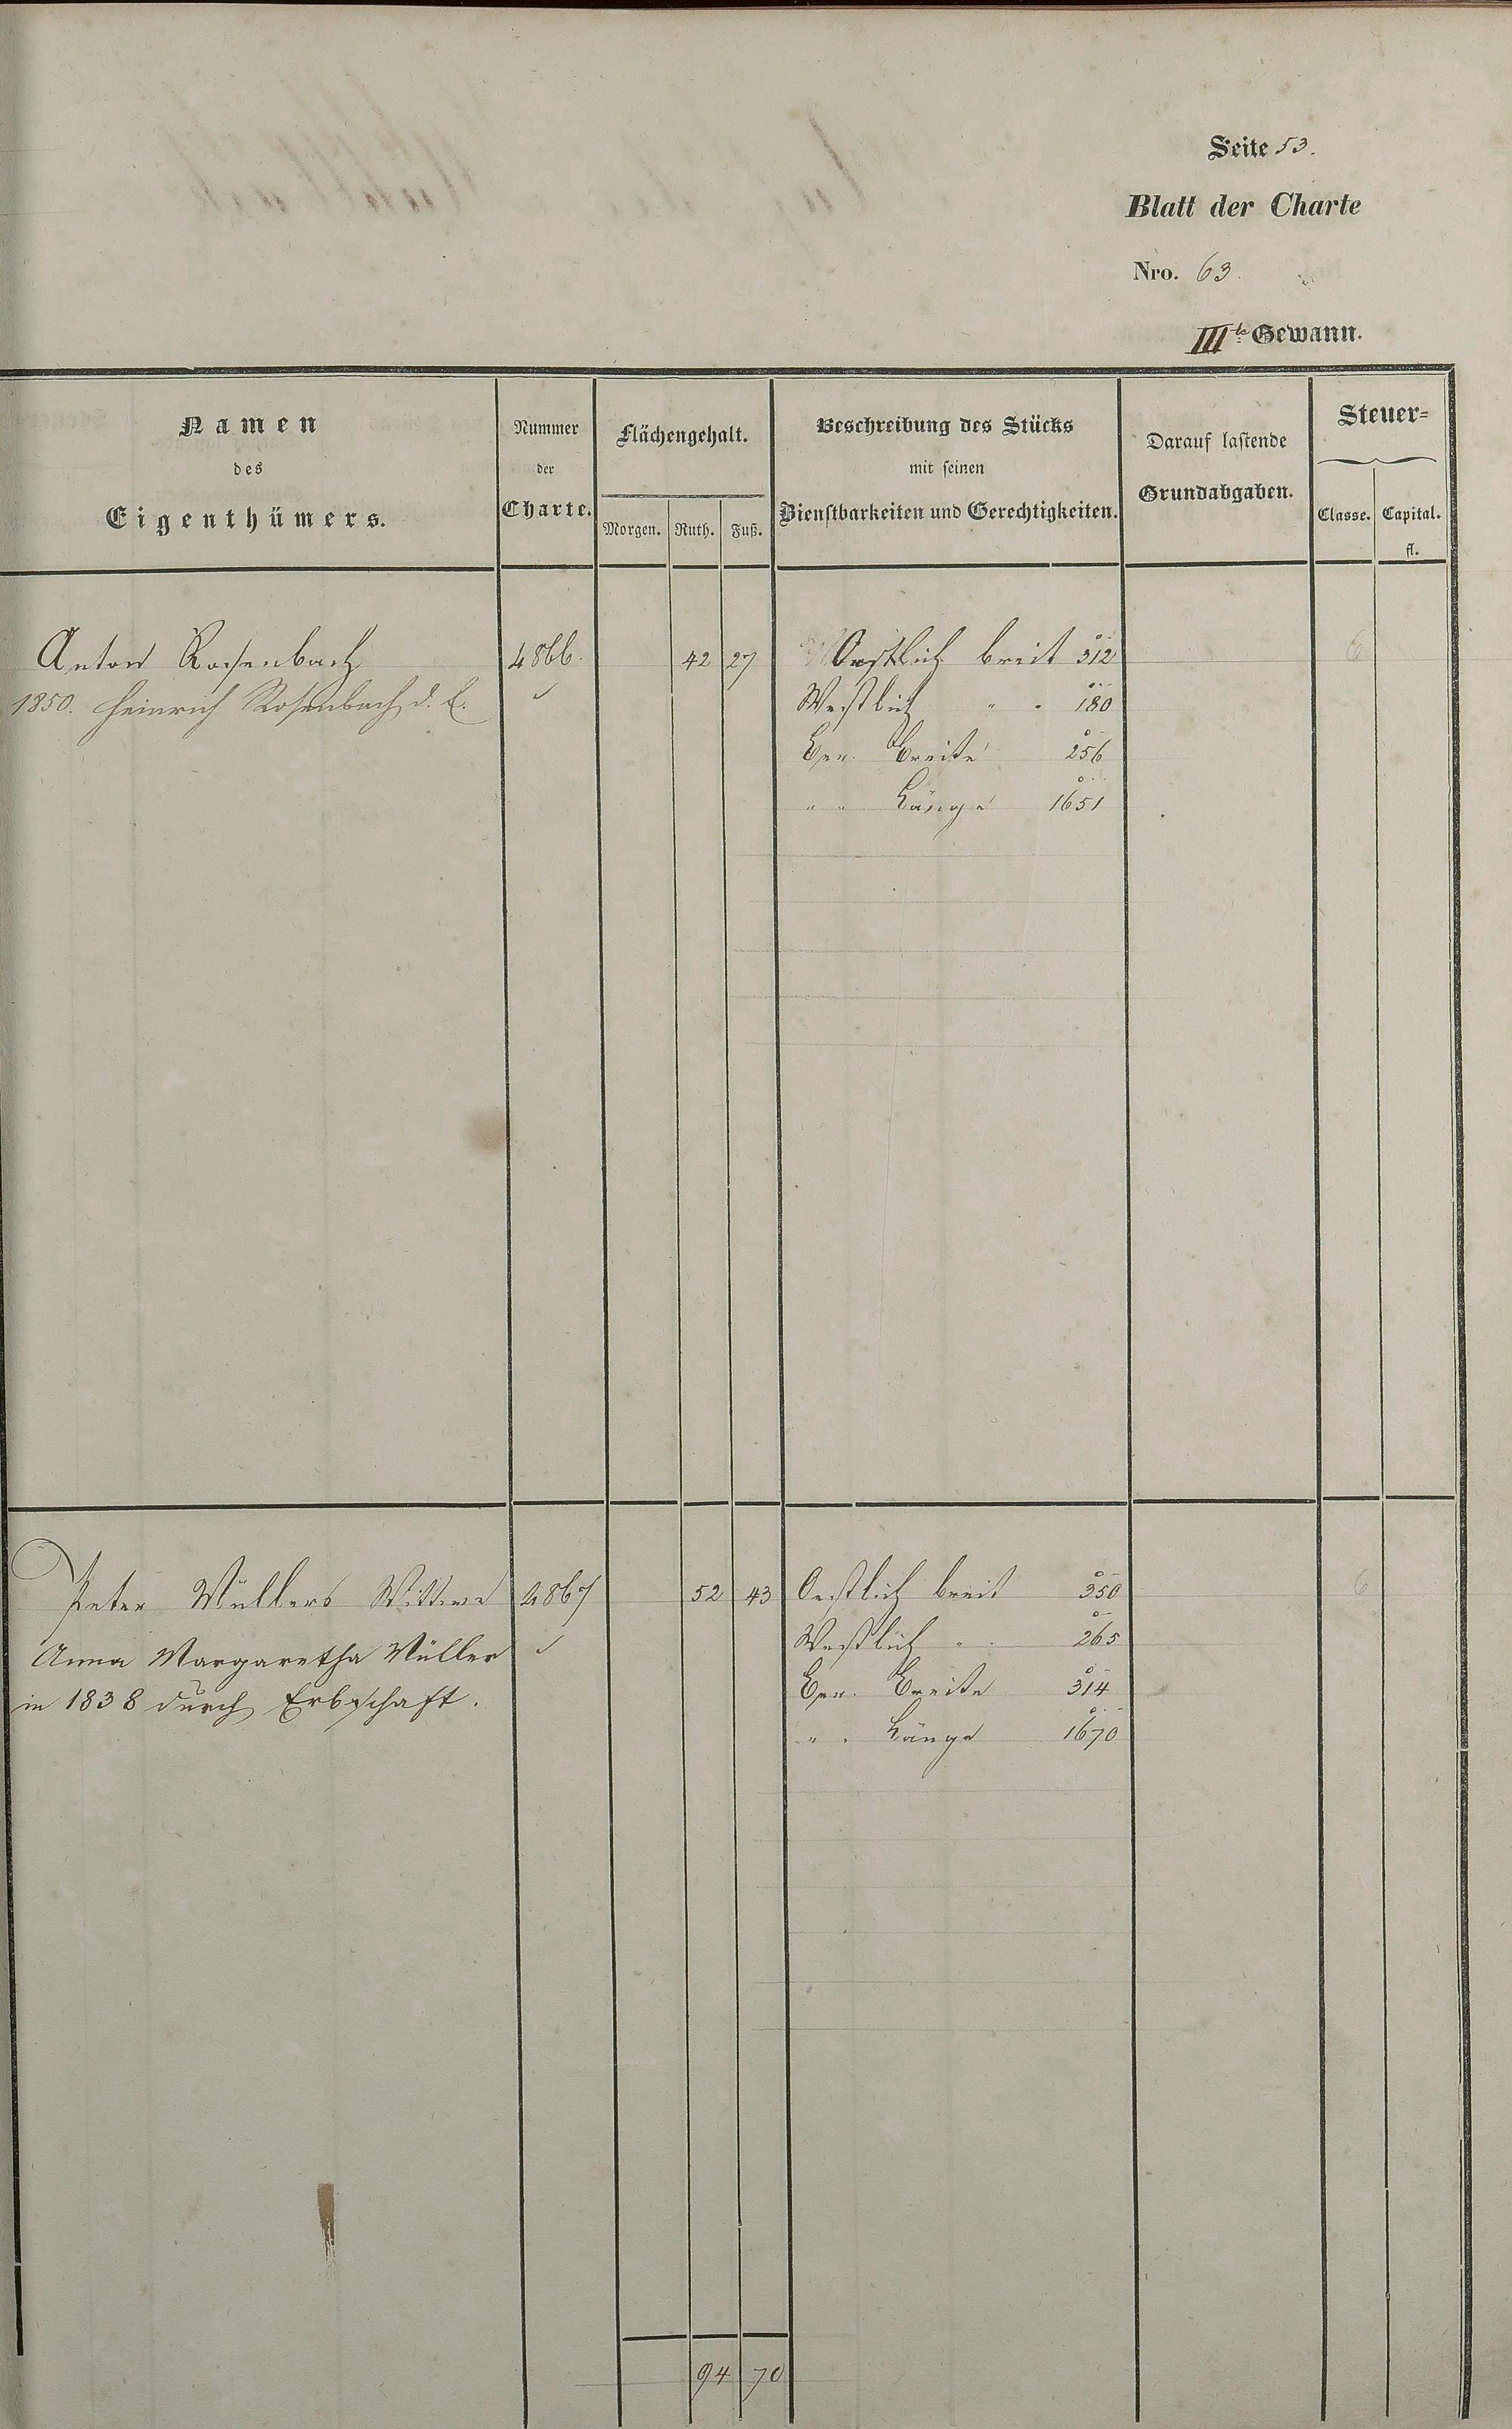 Seite 53.
Blatt der Charte
Nro. 63.
III te Gewann.
Namen
des
Eigenthümers.
Nummer
der
Charte.
Flächengehalt.
Morgen. Ruth. Fuß.
Beschreibung des Stücks
mit seinen
Dienstbarkeiten und Gerechtigkeiten.
Darauf lastende
Grundabgaben.
Steuer=
Classe. Capital.
fl.
Anton Rosenbach 4866. 42 27 Oestlich breit 312 6
1850. Heinrich Rosenbach d. E. Westlich " " 180
Ger. Breite 256
" " Länge 1651
Peter Müllers Wittwe 4867 52 43 Oestlich breit 350 6
Anna Margaretha Müller Westlich " 265
in 1838 durch Erbschaft. Ger. Breite 314
" " Länge 1670
94 70